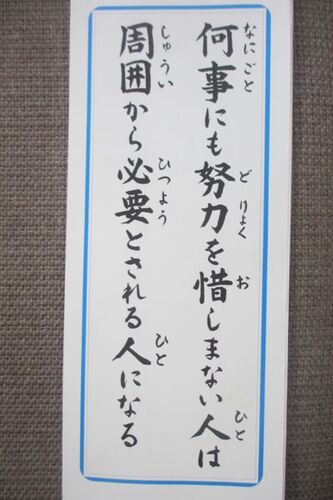 何事にも努力を惜しまない人は
なにごと どりょく お ひと
周囲から必要とされる人になる
しゅうい ひつよう ひと